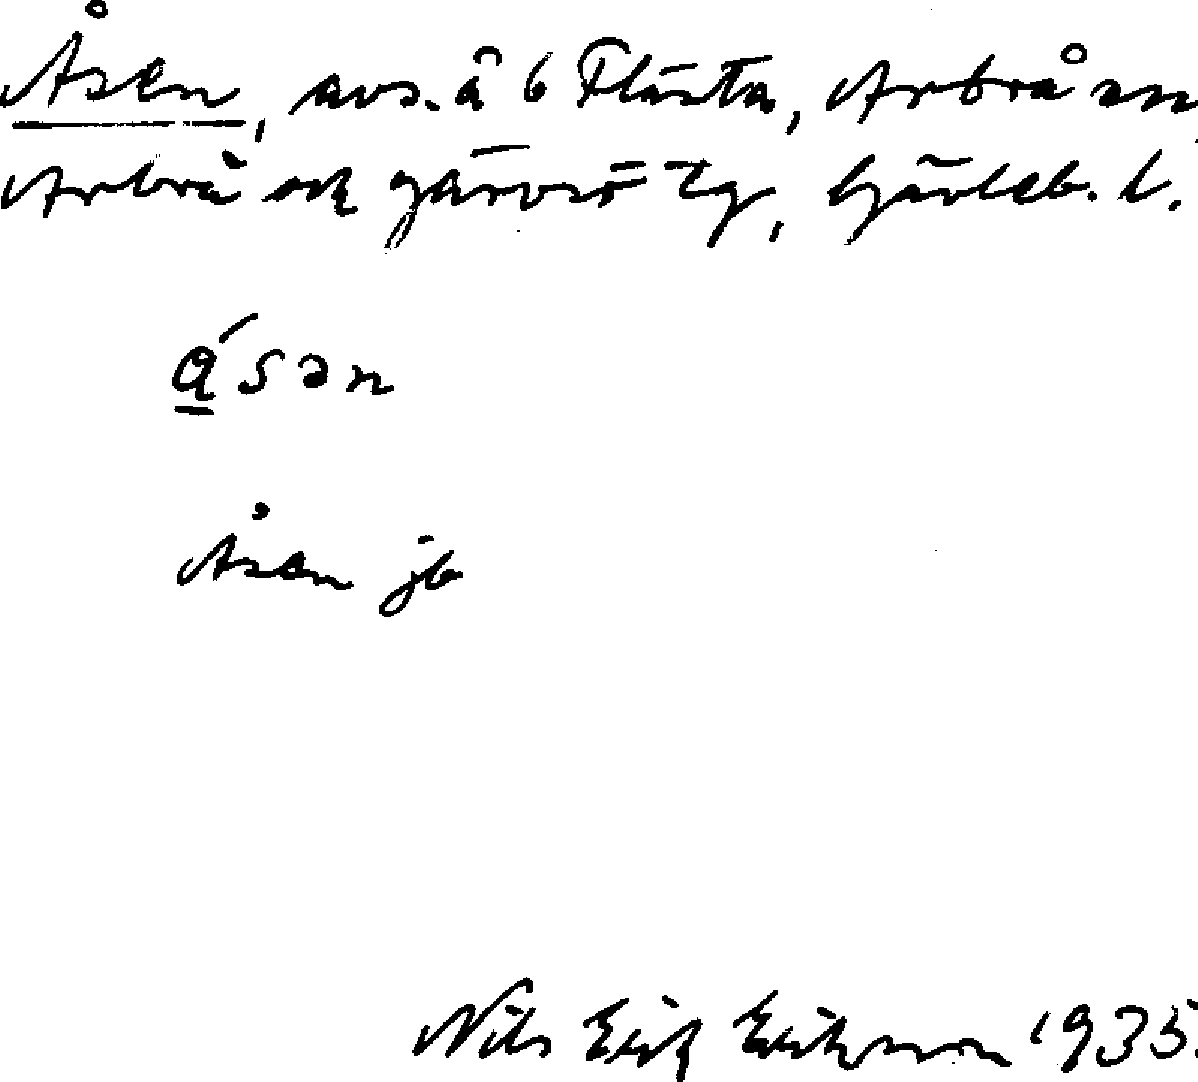 Åsen, avs. å 6 Flästa, Arbrå sn
Arbrå och Järvsö tg, Gävleb. l.
å´sən
Åsen jb
Nils Erik Eriksson 1935.